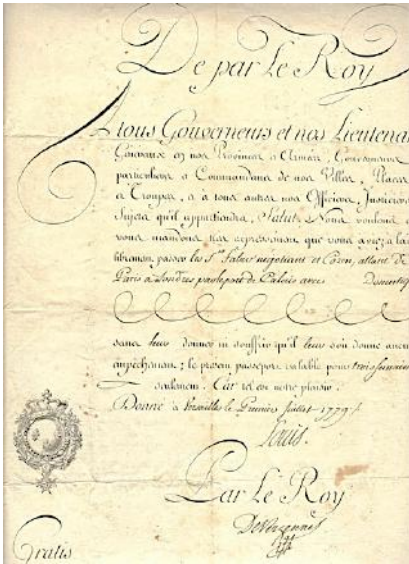 De par Le Roy
A tous Gouverneurs et nos Lieutenan
Généraux en nos Provinces & Armées, Gouverneurs
particuliers & Commandans de nos Villes, Places
& Troupes, & à tous autres nos Officiers, Justiciers
Sujets qu'il appartiendra, Salut. Nous voulons
vous mandons très expressément que vous ayez à lai
librement passer les Srs negotiant et allant de
Paris à Londres par le port de Calais avec Domestiq
sans leur donner ni souffrir qu'il leur soit donné aucun
empêchement; le présent passeport valable pour trois semaines
seulement. Car tel est notre plaisir.
Donné à Versailles le Premier Juillet 1779
Louis.
Par Le Roy
De Vergennes
Gratis